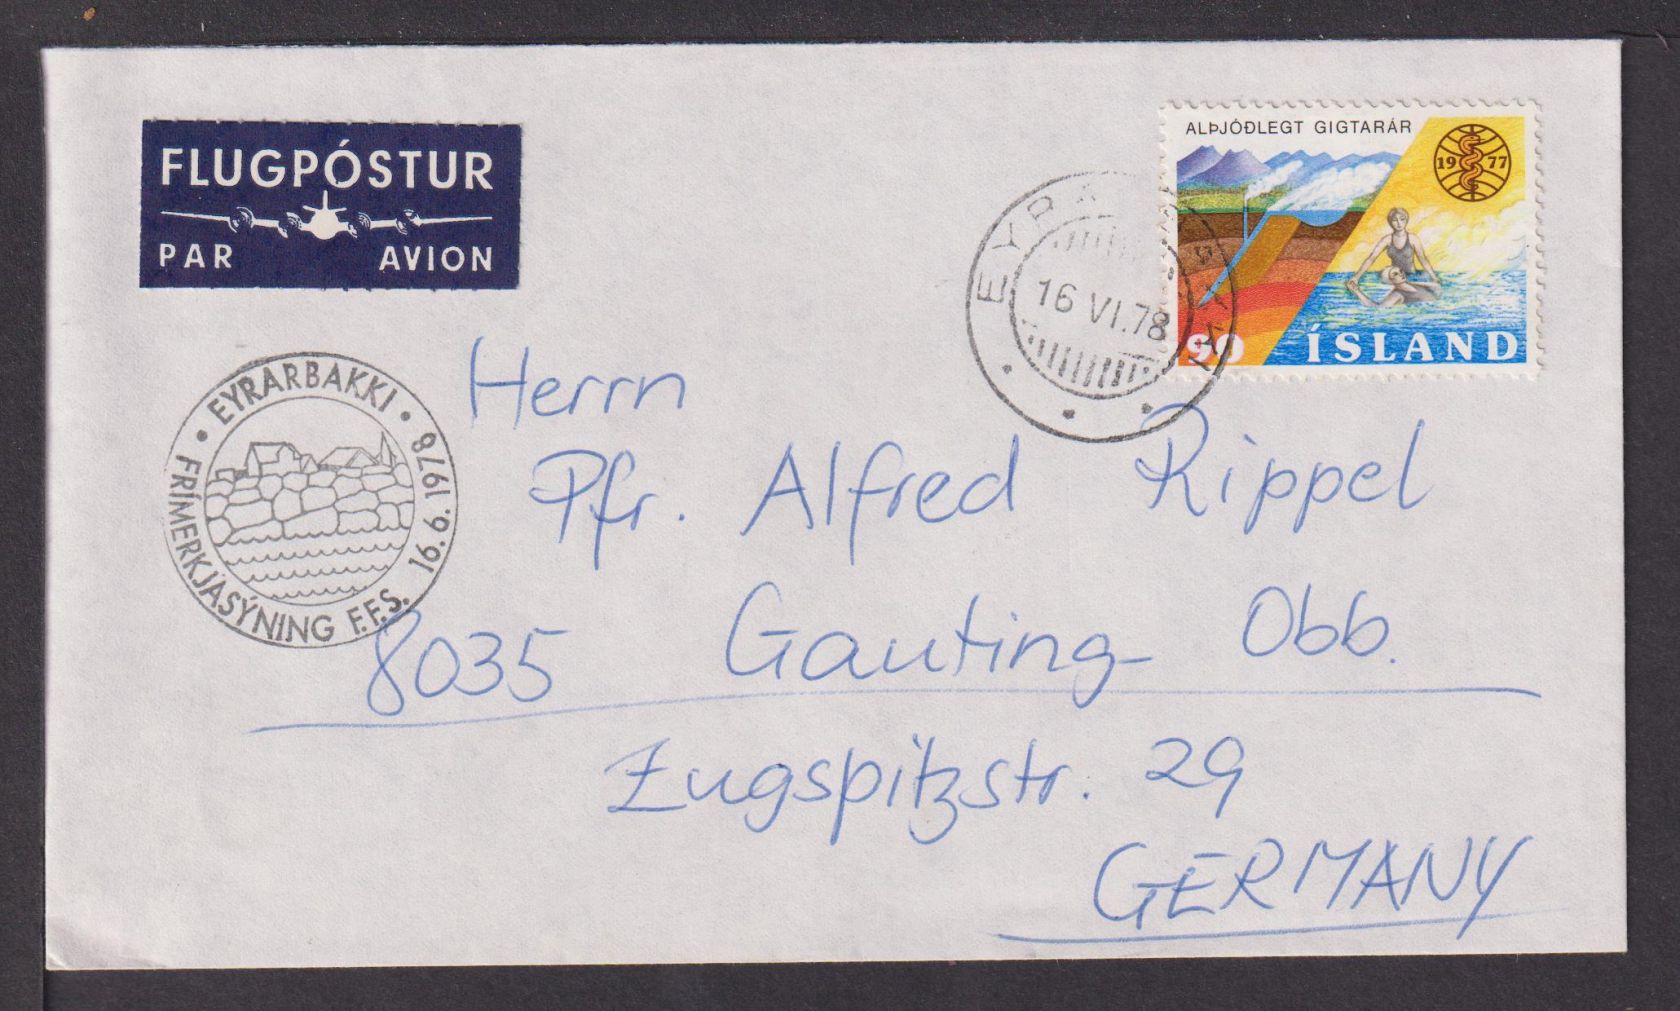 FLUGPÓSTUR
PAR AVION
ALÞJÓÐLEGT GIGTARÁR
1977
90 ÍSLAND
16 VI.78
EYRARBAKKI
16.6.1978
FRÍMERKJASÝNING F.F.S.
Herrn
Pfr. Alfred Rippel
8035 Gauting Obb.
Zugspitzstr. 29
GERMANY